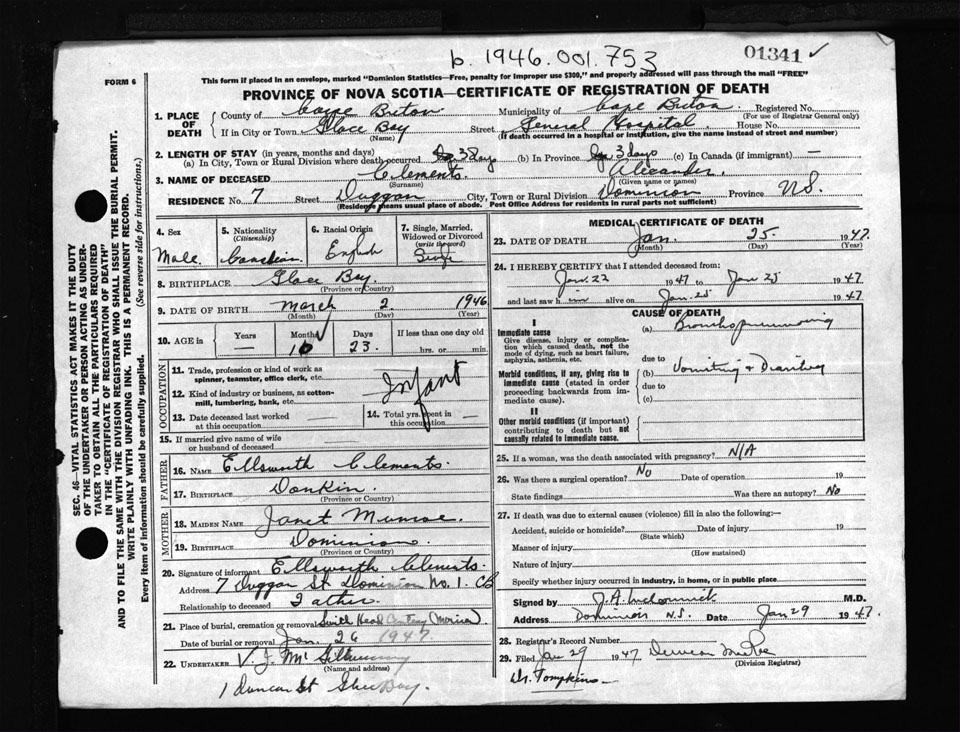 b. 1946.001.753
01341 ✓
FORM 6
This form if placed in an envelope, marked "Dominion Statistics—Free, penalty for improper use $300," and properly addressed will pass through the mail "FREE"
PROVINCE OF NOVA SCOTIA—CERTIFICATE OF REGISTRATION OF DEATH
SEC. 46—VITAL STATISTICS ACT MAKES IT THE DUTY
OF THE UNDERTAKER OR PERSON ACTING AS UNDER-
TAKER TO OBTAIN ALL THE PARTICULARS REQUIRED
IN THE "CERTIFICATE OF REGISTRATION OF DEATH"
AND TO FILE THE SAME WITH THE DIVISION REGISTRAR WHO SHALL ISSUE THE BURIAL PERMIT.
WRITE PLAINLY WITH UNFADING INK. THIS IS A PERMANENT RECORD.
Every item of information should be carefully supplied. (See reverse side for instructions.)
1. PLACE OF DEATH
County of Cape Breton Municipality of Cape Breton Registered No.
(For use of Registrar General only)
If in City or Town Glace Bay Street General Hospital House No.
(Name) (If death occurred in a hospital or institution, give the name instead of street and number)
2. LENGTH OF STAY (in years, months and days)
(a) In City, Town or Rural Division where death occurred 3 days (b) In Province 3 days (c) In Canada (if immigrant) —
3. NAME OF DECEASED Clements. Alexander.
(Surname) (Given name or names)
RESIDENCE No. 7 Street Duggan City, Town or Rural Division Dominion Province N.S.
(Residence means usual place of abode. Post Office Address for residents in rural parts not sufficient)
4. Sex Male
5. Nationality (Citizenship) Canadian
6. Racial Origin English
7. Single, Married, Widowed or Divorced (write the word) Single
8. BIRTHPLACE Glace Bay.
(Province or Country)
9. DATE OF BIRTH March 2 1946
(Month) (Day) (Year)
10. AGE in Years — Months 10 Days 23. If less than one day old
hrs. or min.
11. Trade, profession or kind of work as
spinner, teamster, office clerk, etc.
Infant
12. Kind of industry or business, as cotton-
mill, lumbering, bank, etc.
13. Date deceased last worked
at this occupation —
14. Total yrs. spent in
this occupation —
15. If married give name of wife
or husband of deceased
FATHER
16. NAME Ellsworth Clements.
17. BIRTHPLACE Donkin.
(Province or Country)
MOTHER
18. MAIDEN NAME Janet Munroe.
19. BIRTHPLACE Dominion
(Province or Country)
20. Signature of informant Ellsworth Clements.
Address 7 Duggan St. Dominion No. 1. CB
Relationship to deceased Father.
21. Place of burial, cremation or removal Head
Date of burial or removal Jan. 26 1947
22. UNDERTAKER V. J. Mc
(Name and address)
1 Duncan St Glace Bay.
MEDICAL CERTIFICATE OF DEATH
23. DATE OF DEATH Jan. 25 1947.
(Month) (Day) (Year)
24. I HEREBY CERTIFY that I attended deceased from:
Jan. 22 1947 to Jan 25 1947
and last saw him alive on Jan. 25 1947
CAUSE OF DEATH
I
Immediate cause
Give disease, injury or complica-
tion which caused death, not the
mode of dying, such as heart failure,
asphyxia, asthenia, etc.
(a) Bronchopneumonia
due to
Morbid conditions, if any, giving rise to
immediate cause (stated in order
proceeding backwards from im-
mediate cause).
(b) Vomiting & Diarrhea
due to
(c)
II
Other morbid conditions (if important)
contributing to death but not
causally related to immediate cause.
25. If a woman, was the death associated with pregnancy? N/A
26. Was there a surgical operation? No Date of operation 19
State findings Was there an autopsy? No
27. If death was due to external causes (violence) fill in also the following:—
Accident, suicide or homicide? Date of injury 19
(State which)
Manner of injury
(How sustained)
Nature of injury
Specify whether injury occurred in industry, in home, or in public place
Signed by J. A. McCormick M.D.
Address Dominion N.S. Date Jan 29 1947.
28. Registrar's Record Number
29. Filed Jan 29 1947
(Division Registrar)
Dr. Tompkins